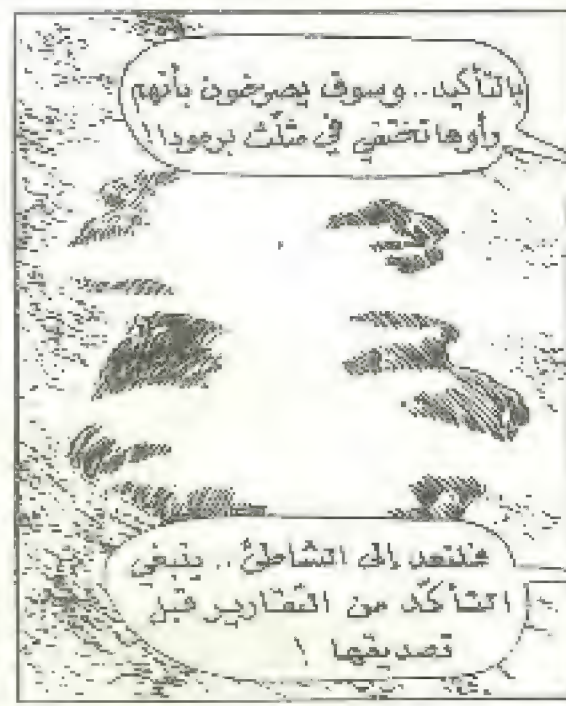 بالتأكيد.. وسوف يصرخون بأنهم
رأوها تختفي في مثلّث برمودا!!
فلنعد إلى الشاطئ.. ينبغي
التأكّد من التقارير قبل
تصديقها !